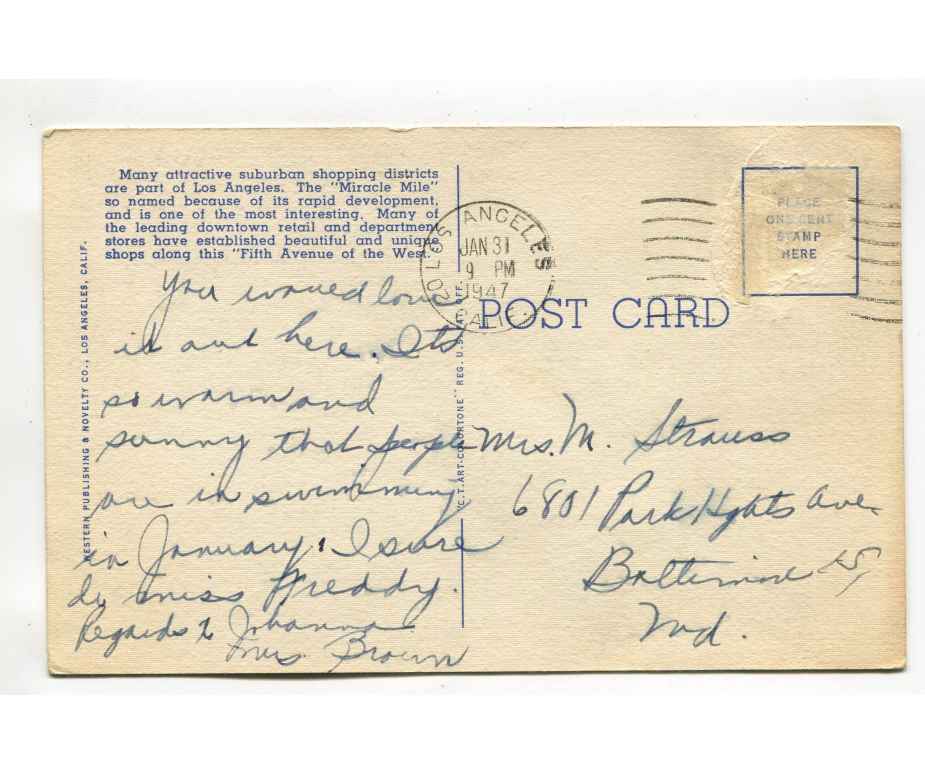 Many attractive suburban shopping districts
are part of Los Angeles. The "Miracle Mile"
so named because of its rapid development,
and is one of the most interesting. Many of
the leading downtown retail and department
stores have established beautiful and unique
shops along this "Fifth Avenue of the West."
WESTERN PUBLISHING & NOVELTY CO., LOS ANGELES, CALIF.
You would love
it out here. Its
so warm and
sunny that people
are in swimming
in January. I sure
do miss Freddy.
Regards to Johanna
Mrs. Brown
"C.T. ART-COLORTONE" REG. U.S. OFF.
LOS ANGELES
JAN 31
9 PM
1947
CALIF.
PLACE
ONE CENT
STAMP
HERE
POST CARD
Mrs. M. Strauss
6801 Park Hghts Ave
Baltimore 15,
Md.